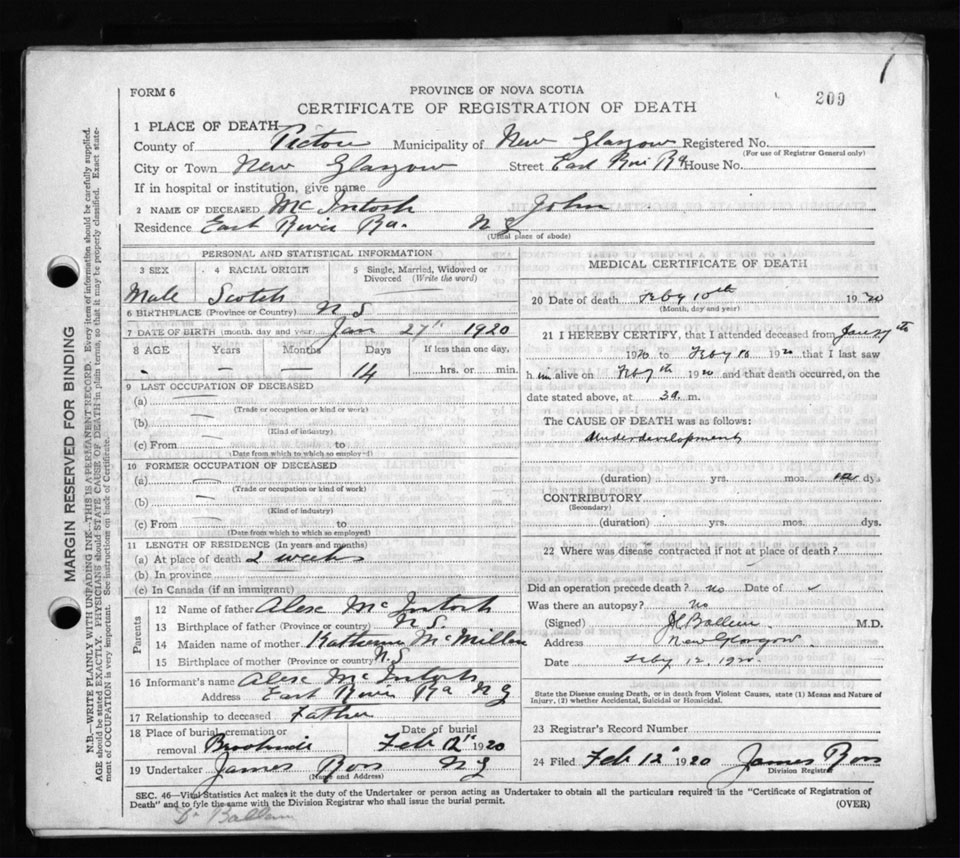 1
FORM 6
PROVINCE OF NOVA SCOTIA
209
CERTIFICATE OF REGISTRATION OF DEATH
1 PLACE OF DEATH
County of Pictou Municipality of New Glasgow Registered No.
(For use of Registrar General only)
City or Town New Glasgow Street East Riv Rd House No.
If in hospital or institution, give name
2 NAME OF DECEASED McIntosh John
Residence East River Rd. N G
(Usual place of abode)
PERSONAL AND STATISTICAL INFORMATION
3 SEX 4 RACIAL ORIGIN 5 Single, Married, Widowed or Divorced (Write the word)
Male Scotch
6 BIRTHPLACE (Province or Country) N S
7 DATE OF BIRTH (month, day and year) Jan 27" 1920
8 AGE Years Months Days If less than one day,
- - - 14 hrs. or min.
9 LAST OCCUPATION OF DECEASED
(a)
(Trade or occupation or kind or work)
(b)
(Kind of industry)
(c) From to
(Date from which to which so employed)
10 FORMER OCCUPATION OF DECEASED
(a)
(Trade or occupation or kind of work)
(b)
(Kind of industry)
(c) From to
(Date from which to which so employed)
11 LENGTH OF RESIDENCE (In years and months)
(a) At place of death 2 weeks
(b) In province
(c) In Canada (if an immigrant)
Parents
12 Name of father Alex McIntosh
13 Birthplace of father N S.
14 Maiden name of mother Katherine McMillan
15 Birthplace of mother (Province or country) N.S
16 Informant's name Alex McIntosh
Address East River Rd N G
17 Relationship to deceased Father
18 Place of burial, cremation or removal Date of burial
Feb 12" 1920
19 Undertaker James Ross N G
(Name and Address)
MEDICAL CERTIFICATE OF DEATH
20 Date of death Feby 10th 1920
(Month, day and year)
21 I HEREBY CERTIFY, that I attended deceased from Jan 27th
1920 to Feby 10 1920 that I last saw
h im alive on Feby 7th 1920 and that death occurred, on the
date stated above, at 3 a. m.
The CAUSE OF DEATH was as follows:
Underdevelopment
(duration) yrs. mos. dys.
CONTRIBUTORY
(Secondary)
(duration) yrs. mos. dys.
22 Where was disease contracted if not at place of death?
Did an operation precede death? no Date of
Was there an autopsy? No
(Signed) M.D.
Address New Glasgow.
Date Feby 12. 1920.
State the Disease causing Death, or in death from Violent Causes, state (1) Means and Nature of
Injury, (2) whether Accidental, Suicidal or Homicidal.
23 Registrar's Record Number
24 Filed Feb 12" 1920 James Ross
Division Registrar
SEC. 46—Vital Statistics Act makes it the duty of the Undertaker or person acting as Undertaker to obtain all the particulars required in the "Certificate of Registration of
Death" and to fyle the same with the Division Registrar who shall issue the burial permit.
(OVER)
MARGIN RESERVED FOR BINDING
N.B.—WRITE PLAINLY WITH UNFADING INK—THIS IS A PERMANENT RECORD. Every item of information should be carefully supplied.
AGE should be stated EXACTLY. PHYSICIANS should STATE CAUSE OF DEATH in plain terms, so that it may be properly classified. Exact statement
of OCCUPATION is very important. See instructions on back of Certificate.